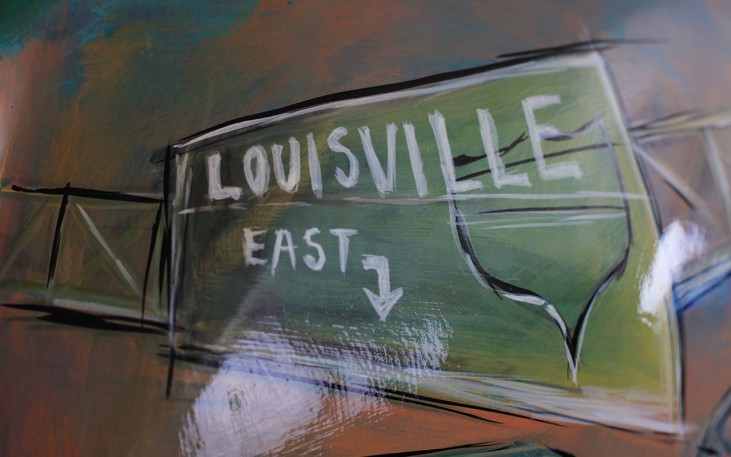 LOUISVILLE
EAST